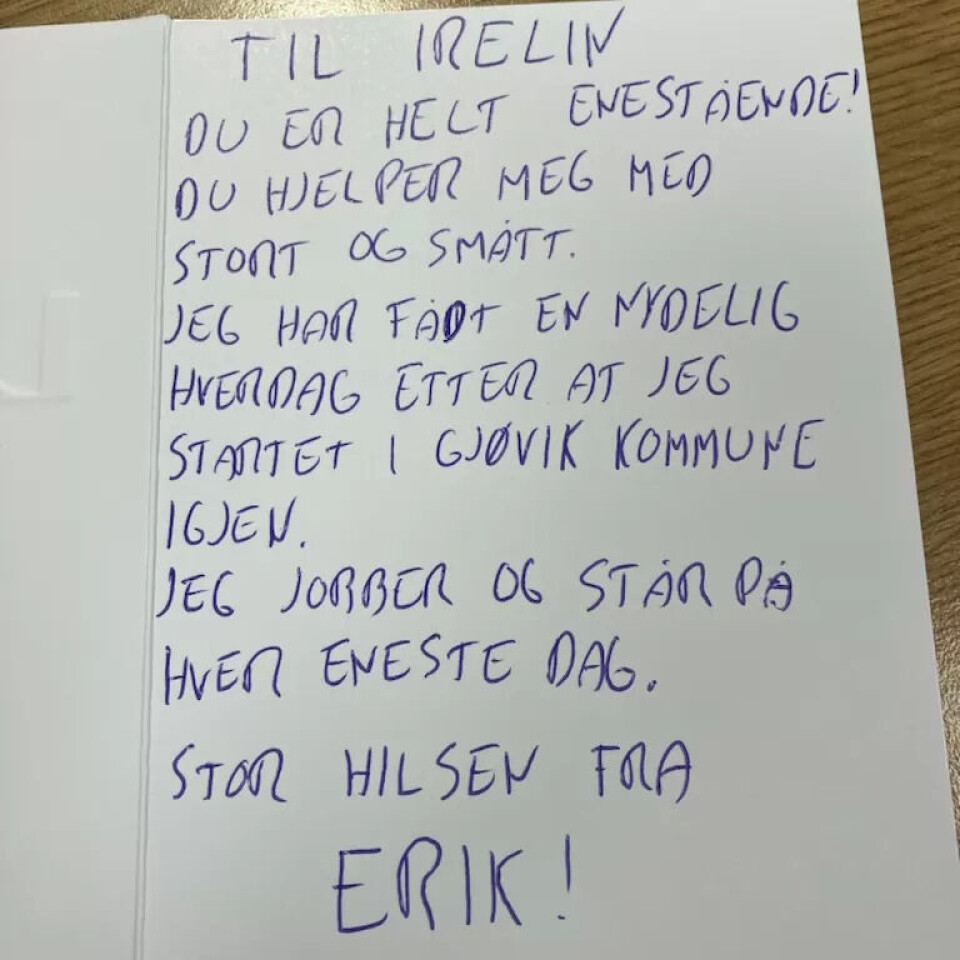 TIL IRELIN
DU ER HELT ENESTÅENDE!
DU HJELPER MEG MED
STORT OG SMÅTT.
JEG HAR FÅDT EN NYDELIG
HVERDAG ETTER AT JEG
STARTET I GJØVIK KOMMUNE
IGJEN.
JEG JOBBER OG STÅR PÅ
HVER ENESTE DAG.
STOR HILSEN FRA
ERIK!